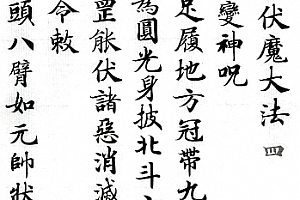 伏魔大法 四
變神咒
足履地方冠帶九
為圓光身披北斗
罡能伏諸惡消滅
令敕
頭八臂如元帥狀